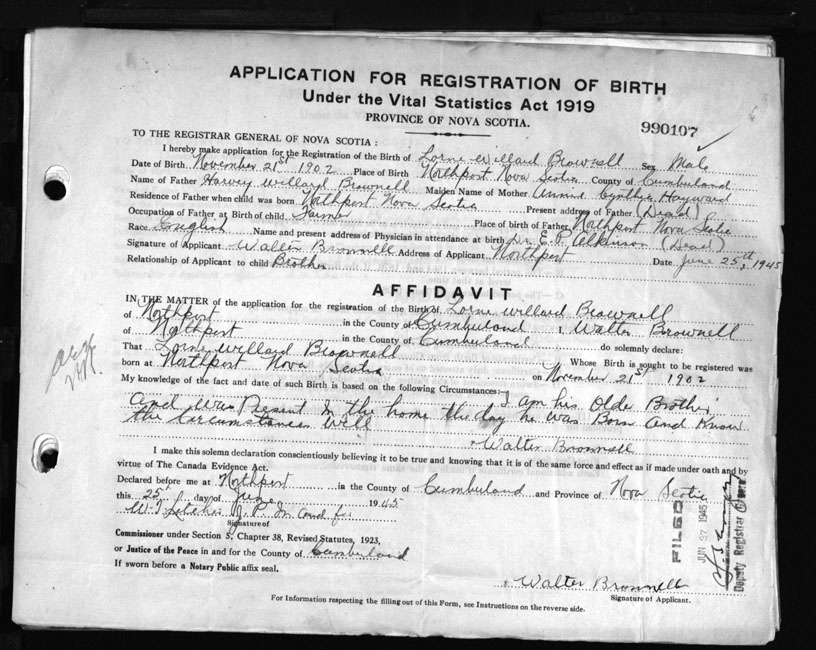 APPLICATION FOR REGISTRATION OF BIRTH
Under the Vital Statistics Act 1919
PROVINCE OF NOVA SCOTIA.
990107
TO THE REGISTRAR GENERAL OF NOVA SCOTIA :
I hereby make application for the Registration of the Birth of Lorne Willard Brownell Sex Male
Date of Birth November 21st 1902 Place of Birth Northport Nova Scotia County of Cumberland
Name of Father Harvey Willard Brownell Maiden Name of Mother Annie Cynthia Hayward
Residence of Father when child was born Northport Nova Scotia Present address of Father (Dead)
Occupation of Father at Birth of child Farmer Place of birth of Father Northport Nova Scotia
Race English Name and present address of Physician in attendance at birth Dr. E. P. Atkinson (Dead)
Signature of Applicant Walter Brownell Address of Applicant Northport Date June 25th, 1945
Relationship of Applicant to child Brother
AFFIDAVIT
IN THE MATTER of the application for the registration of the Birth of Lorne Willard Brownell
of Northport in the County of Cumberland I, Walter Brownell
of Northport in the County of Cumberland do solemnly declare:
That Lorne Willard Brownell Whose Birth is sought to be registered was
born at Northport Nova Scotia on November 21st 1902
My knowledge of the fact and date of such Birth is based on the following Circumstances:- I am his Olde Brother
and was Present In the home the day he was Born and Know
the circumstances well
Walter Brownell
I make this solemn declaration conscientiously believing it to be true and knowing that it is of the same force and effect as if made under oath and by
virtue of The Canada Evidence Act.
Declared before me at Northport in the County of Cumberland and Province of Nova Scotia
this 25 day of June 1945
J. P. In and for
Signature of
Commissioner under Section 5, Chapter 38, Revised Statutes, 1923,
or Justice of the Peace in and for the County of Cumberland
If sworn before a Notary Public affix seal.
FILED
JUN 27 1945
Deputy Registrar General
Walter Brownell
Signature of Applicant.
For Information respecting the filling out of this Form, see Instructions on the reverse side.